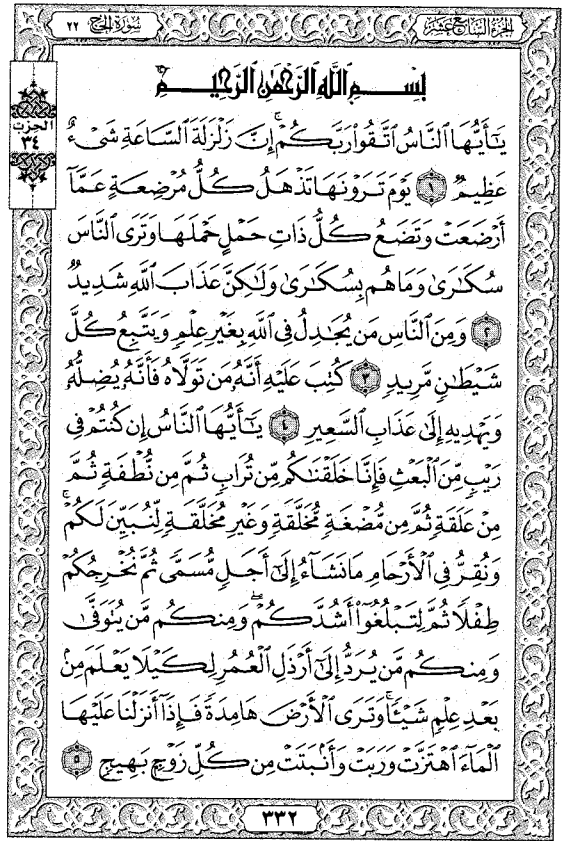 سورة الحج ٢٢
الجزء السابع عشر
الحزب
٣٤
بِسْمِ اللَّهِ الرَّحْمَٰنِ الرَّحِيمِ
يَٰٓأَيُّهَا ٱلنَّاسُ ٱتَّقُوا۟ رَبَّكُمْ ۚ إِنَّ زَلْزَلَةَ ٱلسَّاعَةِ شَىْءٌ
عَظِيمٌ ١ يَوْمَ تَرَوْنَهَا تَذْهَلُ كُلُّ مُرْضِعَةٍ عَمَّآ
أَرْضَعَتْ وَتَضَعُ كُلُّ ذَاتِ حَمْلٍ حَمْلَهَا وَتَرَى ٱلنَّاسَ
سُكَٰرَىٰ وَمَا هُم بِسُكَٰرَىٰ وَلَٰكِنَّ عَذَابَ ٱللَّهِ شَدِيدٌ
٢ وَمِنَ ٱلنَّاسِ مَن يُجَٰدِلُ فِى ٱللَّهِ بِغَيْرِ عِلْمٍ وَيَتَّبِعُ كُلَّ
شَيْطَٰنٍ مَّرِيدٍ ٣ كُتِبَ عَلَيْهِ أَنَّهُۥ مَن تَوَلَّاهُ فَأَنَّهُۥ يُضِلُّهُۥ
وَيَهْدِيهِ إِلَىٰ عَذَابِ ٱلسَّعِيرِ ٤ يَٰٓأَيُّهَا ٱلنَّاسُ إِن كُنتُمْ فِى
رَيْبٍ مِّنَ ٱلْبَعْثِ فَإِنَّا خَلَقْنَٰكُم مِّن تُرَابٍ ثُمَّ مِن نُّطْفَةٍ ثُمَّ
مِنْ عَلَقَةٍ ثُمَّ مِن مُّضْغَةٍ مُّخَلَّقَةٍ وَغَيْرِ مُخَلَّقَةٍ لِّنُبَيِّنَ لَكُمْ ۚ
وَنُقِرُّ فِى ٱلْأَرْحَامِ مَا نَشَآءُ إِلَىٰٓ أَجَلٍ مُّسَمًّى ثُمَّ نُخْرِجُكُمْ
طِفْلًا ثُمَّ لِتَبْلُغُوٓا۟ أَشُدَّكُمْ ۖ وَمِنكُم مَّن يُتَوَفَّىٰ
وَمِنكُم مَّن يُرَدُّ إِلَىٰٓ أَرْذَلِ ٱلْعُمُرِ لِكَيْلَا يَعْلَمَ مِنۢ
بَعْدِ عِلْمٍ شَيْـًٔا ۚ وَتَرَى ٱلْأَرْضَ هَامِدَةً فَإِذَآ أَنزَلْنَا عَلَيْهَا
ٱلْمَآءَ ٱهْتَزَّتْ وَرَبَتْ وَأَنۢبَتَتْ مِن كُلِّ زَوْجٍۭ بَهِيجٍ ٥
٣٣٢